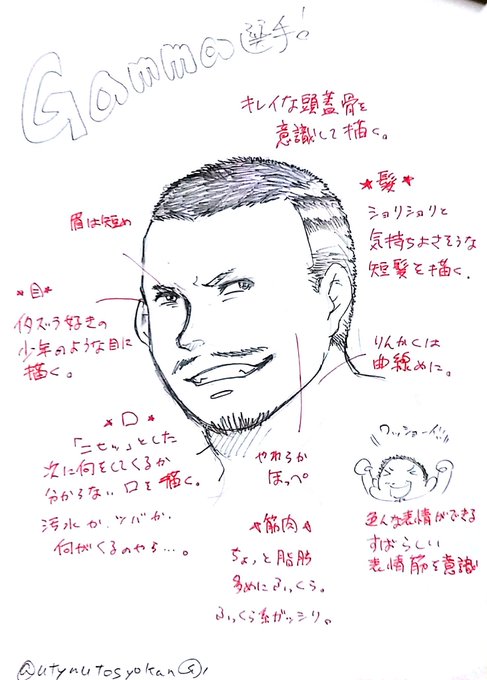 Gamma選手!
キレイな頭蓋骨を
意識して描く。
★髪★
ショリショリと
気持ちよさそうな
短髪を描く。
眉は短め
★目★
イタズラ好きの
少年のような目に
描く。
りんかくは
曲線めに。
★口★
「ニヤッ」とした
次に何をしてくるか
分からない口を描く。
汚水か、ツバか、
何がくるのやら…。
やわらか
ほっぺ
ワッショーイ!!
色んな表情ができる
すばらしい
表情筋を意識
★筋肉★
ちょっと脂肪
多めにふっくら。
ふっくら系ガッシリ。